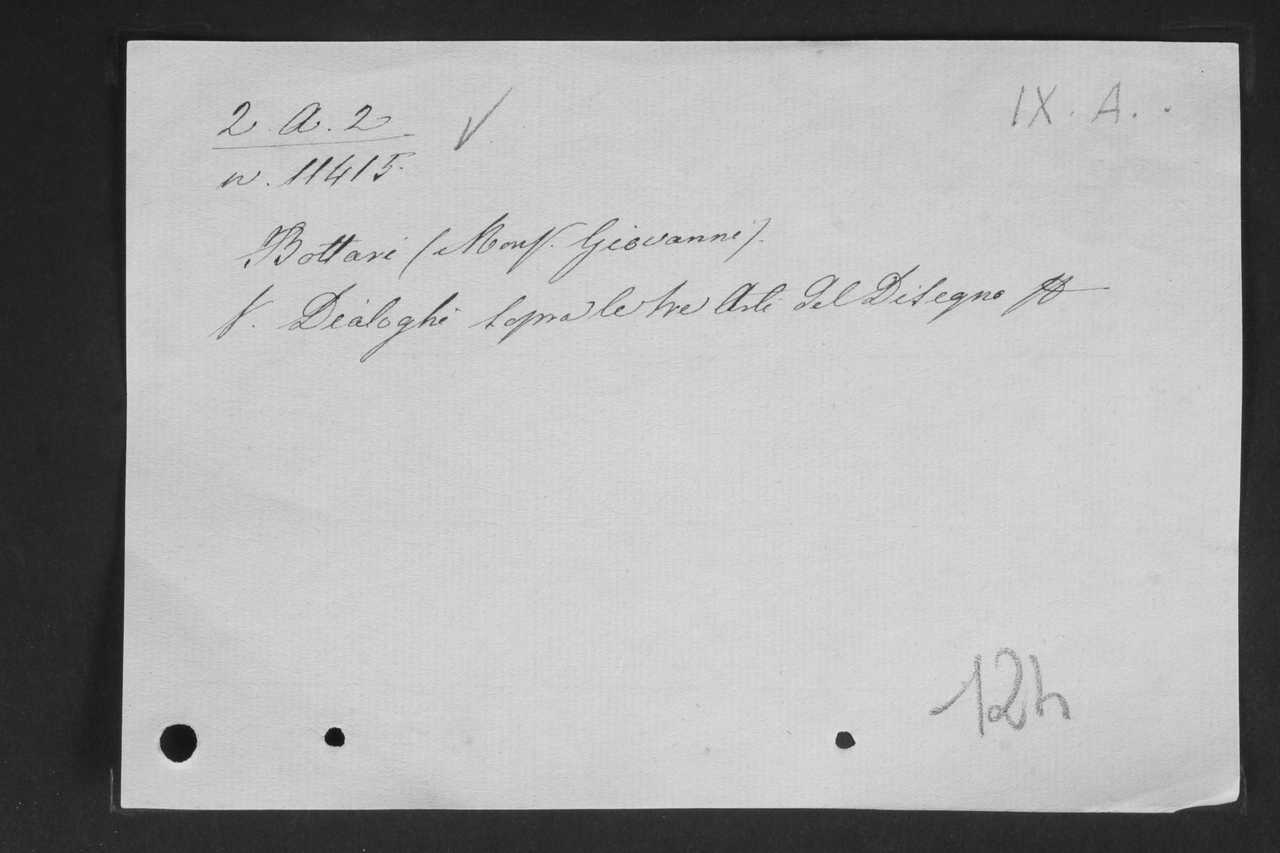 2. A. 2
IX. A..
n. 11415.
Bottari (Monsr. Giovanni).
V. Dialoghi sopra le tre Arti del Disegno
12h